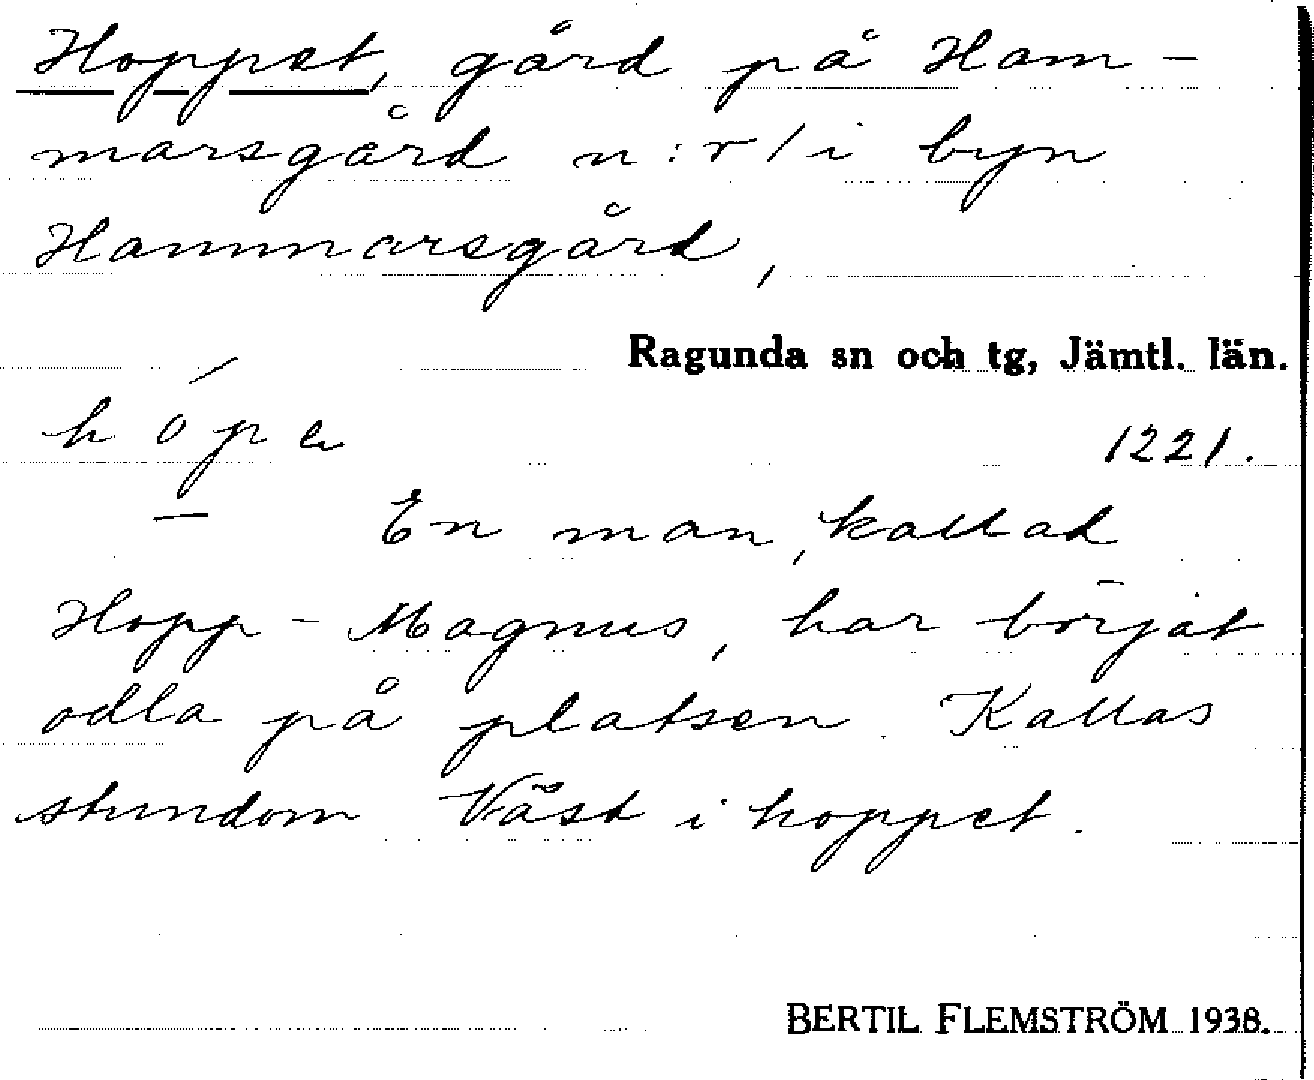 Hoppet, gård på Ham-
marsgård n:r 1 i byn
Hammarsgård,
Ragunda sn och tg, Jämtl. län.
1221.
En man, kallad
Hopp-Magnus, har börjat
odla på platsen. Kallas
stundom Väst i hoppet.
BERTIL FLEMSTRÖM 1938.